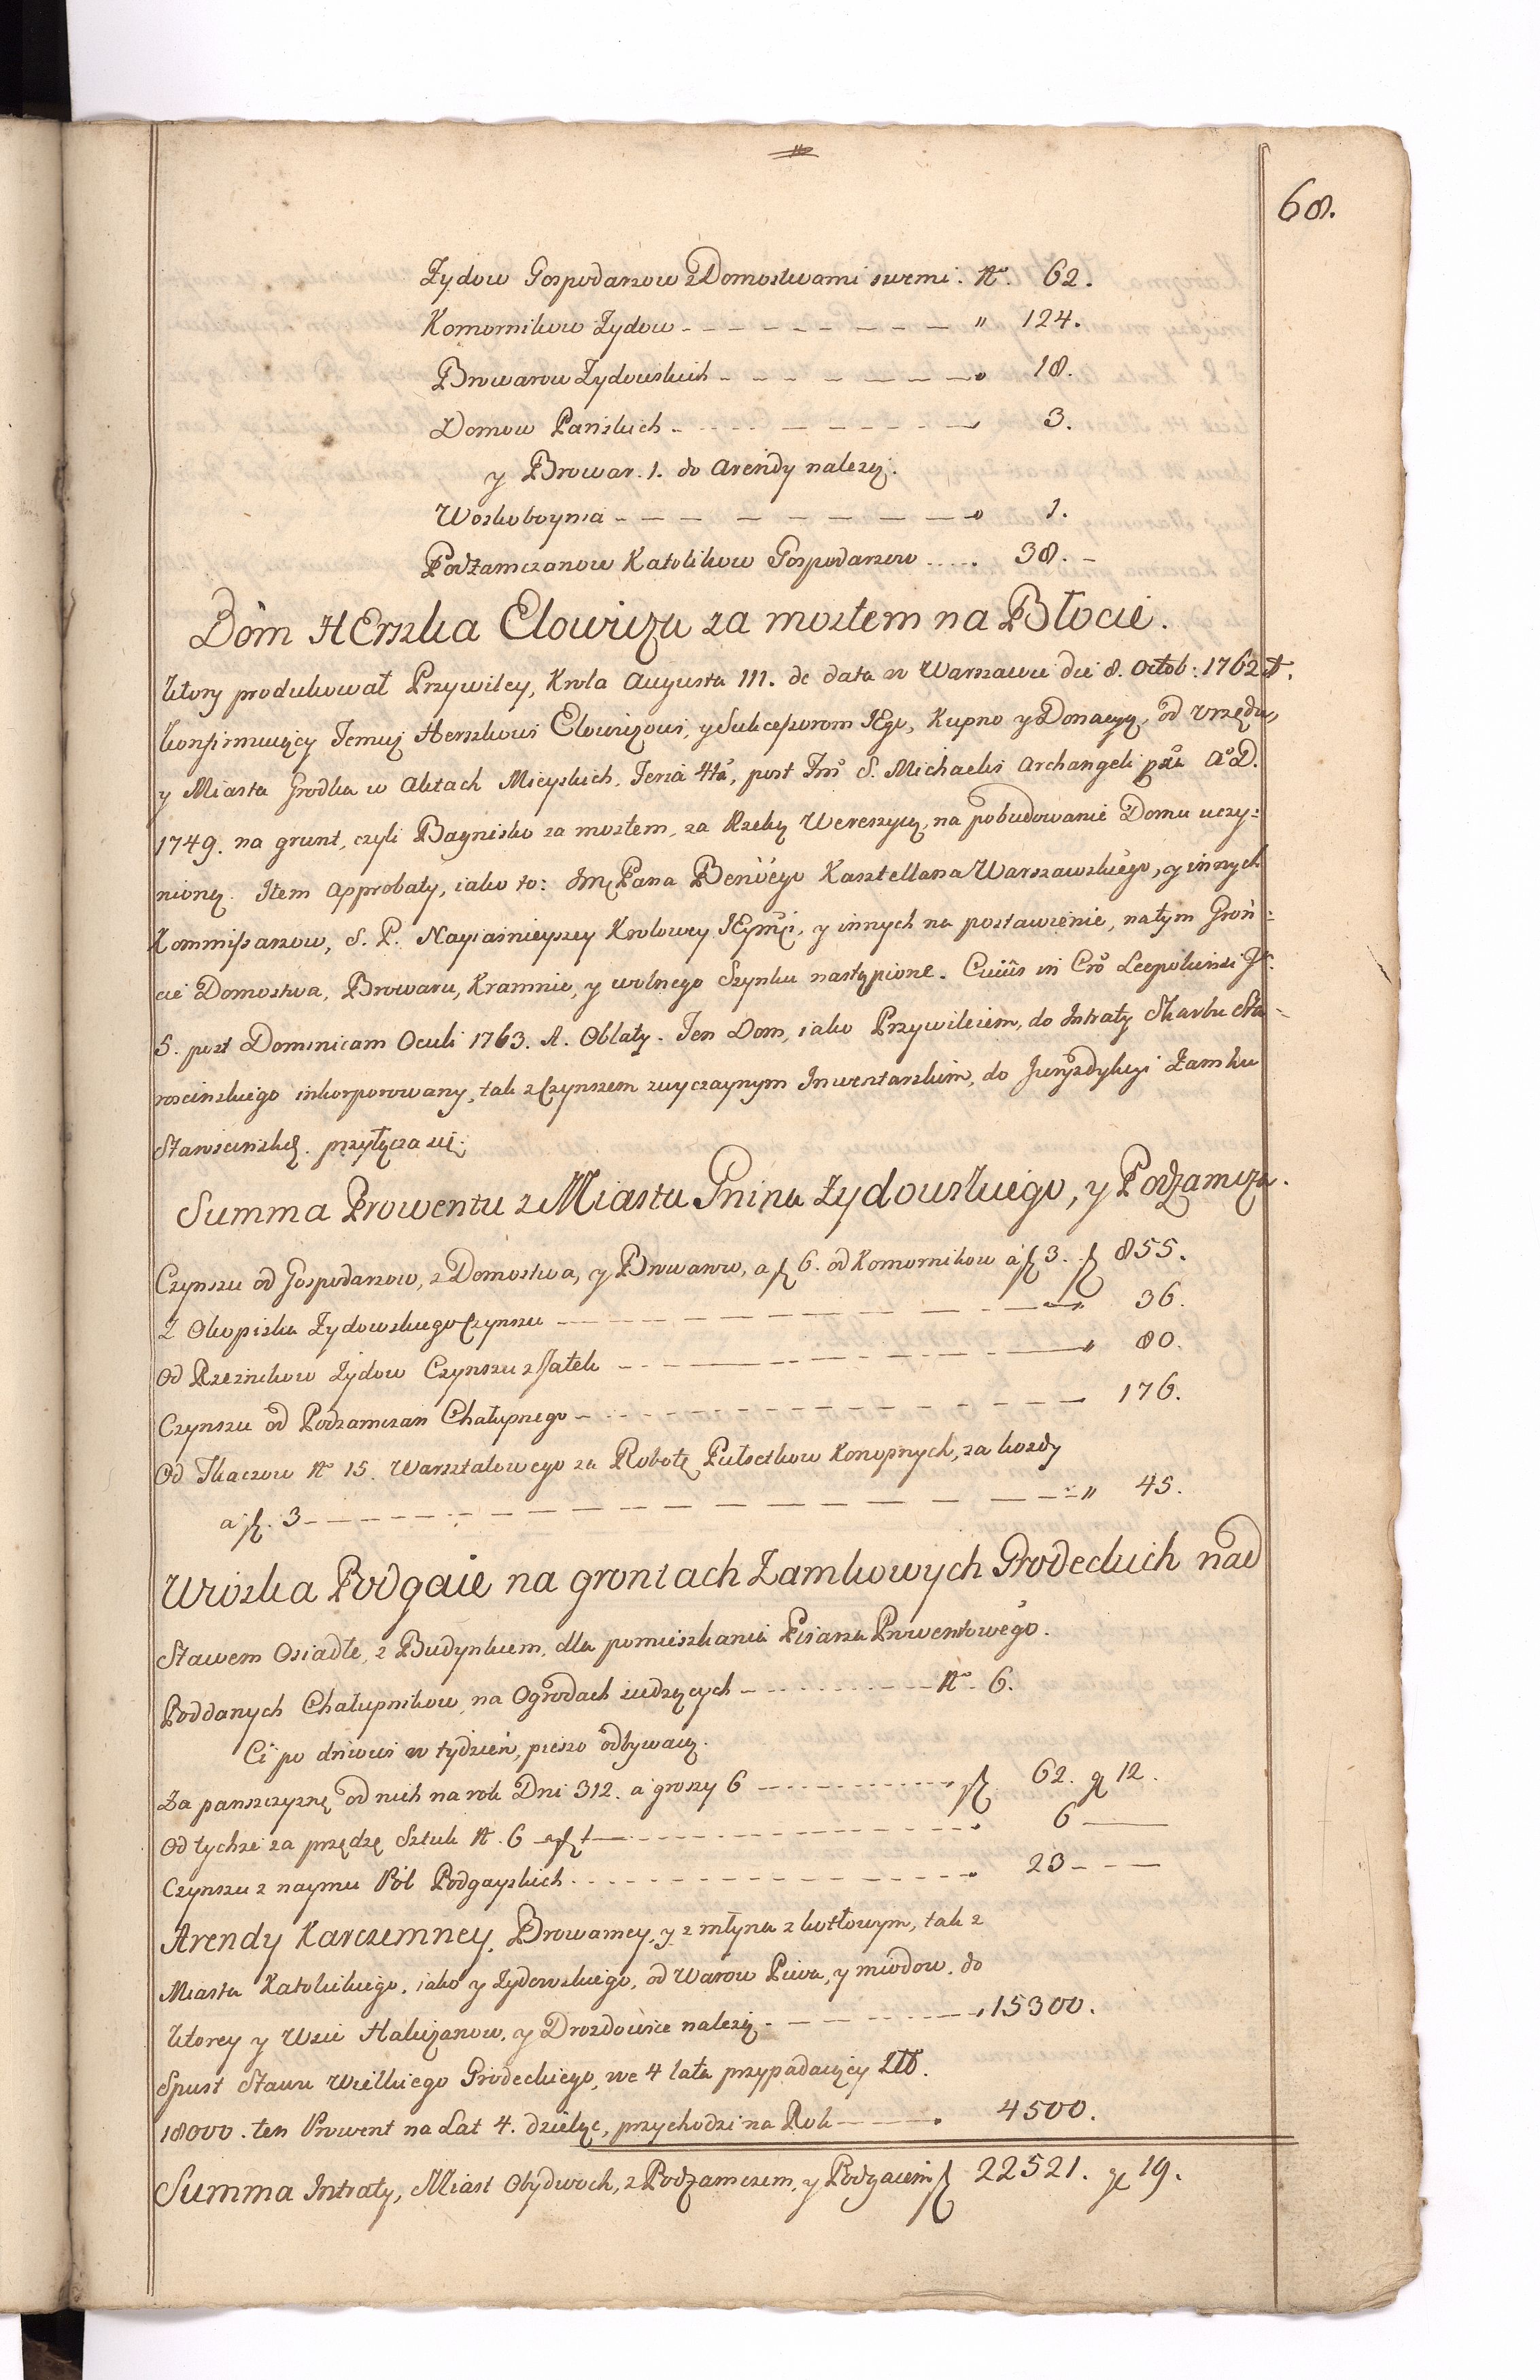 68.
Żydow Gospodarzow z Domostwami swemi. No. 62.
Komornikow Żydow - - - - - - - - " 124.
Browarow Żydowskich - - - - - - - 18.
Domow Pańskich - - - - - - - 3.
y Browar. 1. do Arendy należą.
Woskoboynia - - - - - - - 1.
Podzamczanow Katolikow Gospodarzow ..... 38. -
Dom HErszka Elowicza za mostem na Błocie.
Ktory produkował Przywiley, Krola Augusta III. de data w Warszawie die 8. Octob: 1762 A.
konfirmuiący Temuż Herszkowi Elowiczowi, y Sukcessorom JEgo, Kupno y Donacyą, od Urzędu,
y Miasta Grodka w Aktach Mieyskich, Feria 4ta, post S. Michaelis Archangeli A. D.
1749. na grunt, czyli Bagnisko za mostem, za Rzeką Wereszycą, na pobudowanie Domu uczy=
nioną. Item Approbaty, iako to: Jmć Pana Kasztellana Warszawskiego, y innych
Kommissarzow, S. P. Nayiaśnieyszey Krolowey JEymći, y innych na postawienie, na tym Gron=
cie Domostwa, Browaru, Kramnic, y wolnego Szynku nastąpione. Cuius in Leopoliensi
5. post Dominicam Oculi 1763. A. Oblaty. Ten Dom, iako Przywileiem, do Intraty Skarbu Sta=
rościnskiego inkorporowany, tak z Czynszem zwyczaynym Inwentarskim, do Juryzdykcyi Zamku
Starościnską. przyłącza się.
Summa Prowentu z Miasta Gnina Żydowskiego, y Podzamcza.
Czynszu od Gospodarzow, z Domostwa, y Browarow, a f 6. od Komornikow a f 3. f 855.
Z Okopiska Żydowskiego Czynszu - - - - - - " 36.
Od Rzeznikow Żydow Czynszu z Jatek - - - - - - " 80.
Czynszu od Podzamczan Chałupnego - - - - - - 176.
Od Tkaczow No 15. Warsztatowego za Robotę Pułsetkow Konopnych, za kozdy
a f. 3 - - - - - - - - - " 45.
Wioska Podgaie na grontach Zamkowych Grodeckich nad
Stawem Osiadłe, z Budynkiem, dla pomieszkania Pisarza Prowentowego.
Poddanych Chałupnikow, na Ogrodach siedzących - - - - - - No. 6.
Ci po dniowi w tydzień, pieszo odbywaią.
Za panszczyznę od nich na rok Dni 312. a groszy 6 - - - - - f 62. g 12.
Od tychże za przędzę Sztuk No. 6 a f 1 - - - - - - 6 —
Czynszu z naymu Pol Podgayskich - - - - - - 23 - - —
Arendy Karczemney, Browarney, y z młyna z kotłowym, tak z
Miasta Katolickiego, iako y Żydowskiego, od Warow Piwa, y miodow, do
ktorey y Wsie Haliczanow, y Drozdowice należą - - - - - 15300.
Spust Stawu Wielkiego Grodeckiego, we 4 lata przypadaiący Złł.
18000. ten Prowent na Lat 4. dzieląc, przychodzi na Rok - - - 4500.
Summa Intraty, Miast Obydwoch, z Podzamczem, y Podgaiem f 22521. g 19.